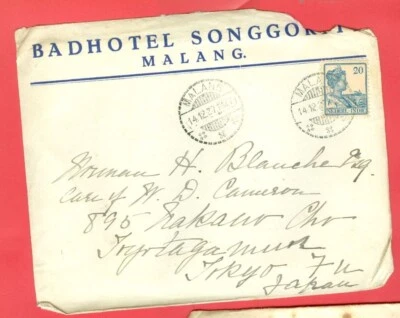 BADHOTEL SONGGORITI
MALANG.
MALANG
14.12.22
20
MALANG
14.12.22
NEDERL. INDIE
Norman H. Blanche Esq.
Care of W. D. Cameron
895 Nakano Cho
Toyotagamura
Tokyo Fu
Japan